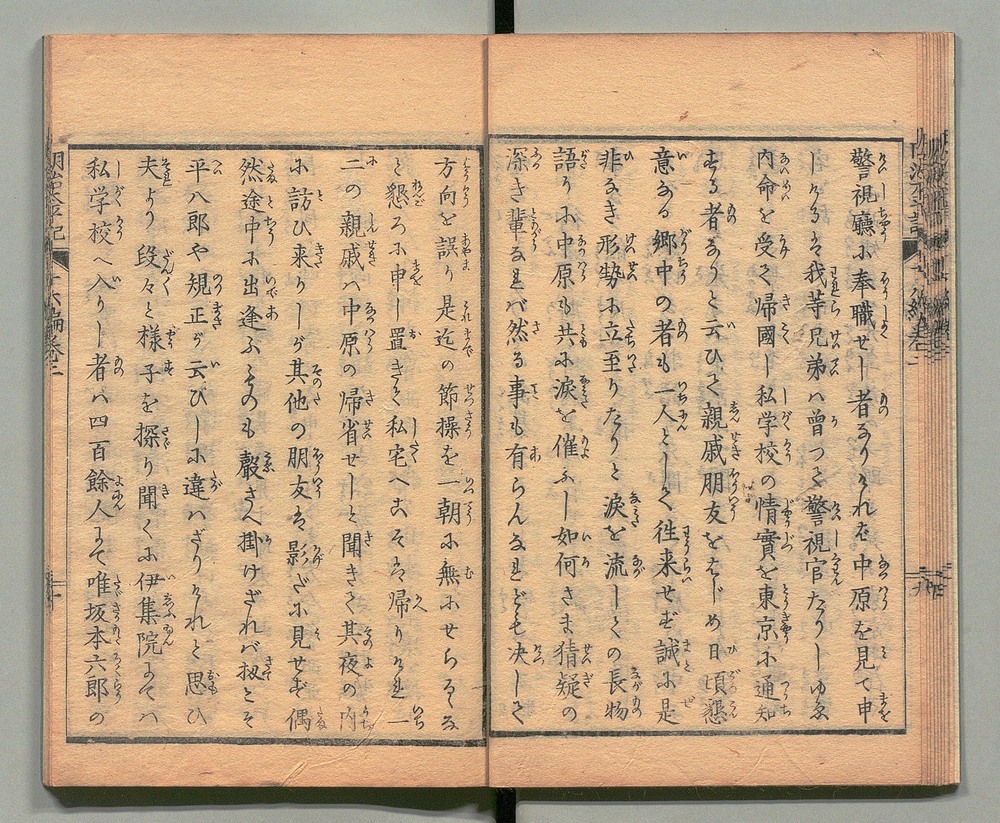 警視廳に奉職せし者なりければ中原を見て申
しけるは我等兄弟は曾つて警視官たりしゆゑ
内命を受て帰國し私学校の情實を東京に通知
する者なりと云ひて親戚朋友をはじめ日頃懇
意なる郷中の者も一人として徃来せず誠に是
非なき形勢に立至りたりと涙を流しての長物
語りに中原も共に涙を催ふし如何さま猜疑の
深き輩なれば然る事も有らんなれども决して
方向を誤り是迄の節操を一朝に無にせらるな
と懇ろに申し置きて私宅へこそは帰りけれ一
二の親戚ハ中原の帰省せしと聞きて其夜の内
に訪ひ来りしが其他の朋友は影だに見せず偶
然途中に出逢ふものも聲さへ掛けざれバ扨こそ
平八郎や規正が云ひしに違ハざりけれと思ひ
夫より段々と様子を探り聞くに伊集院にてハ
私学校へ入りし者ハ四百餘人にて唯坂本六郎の